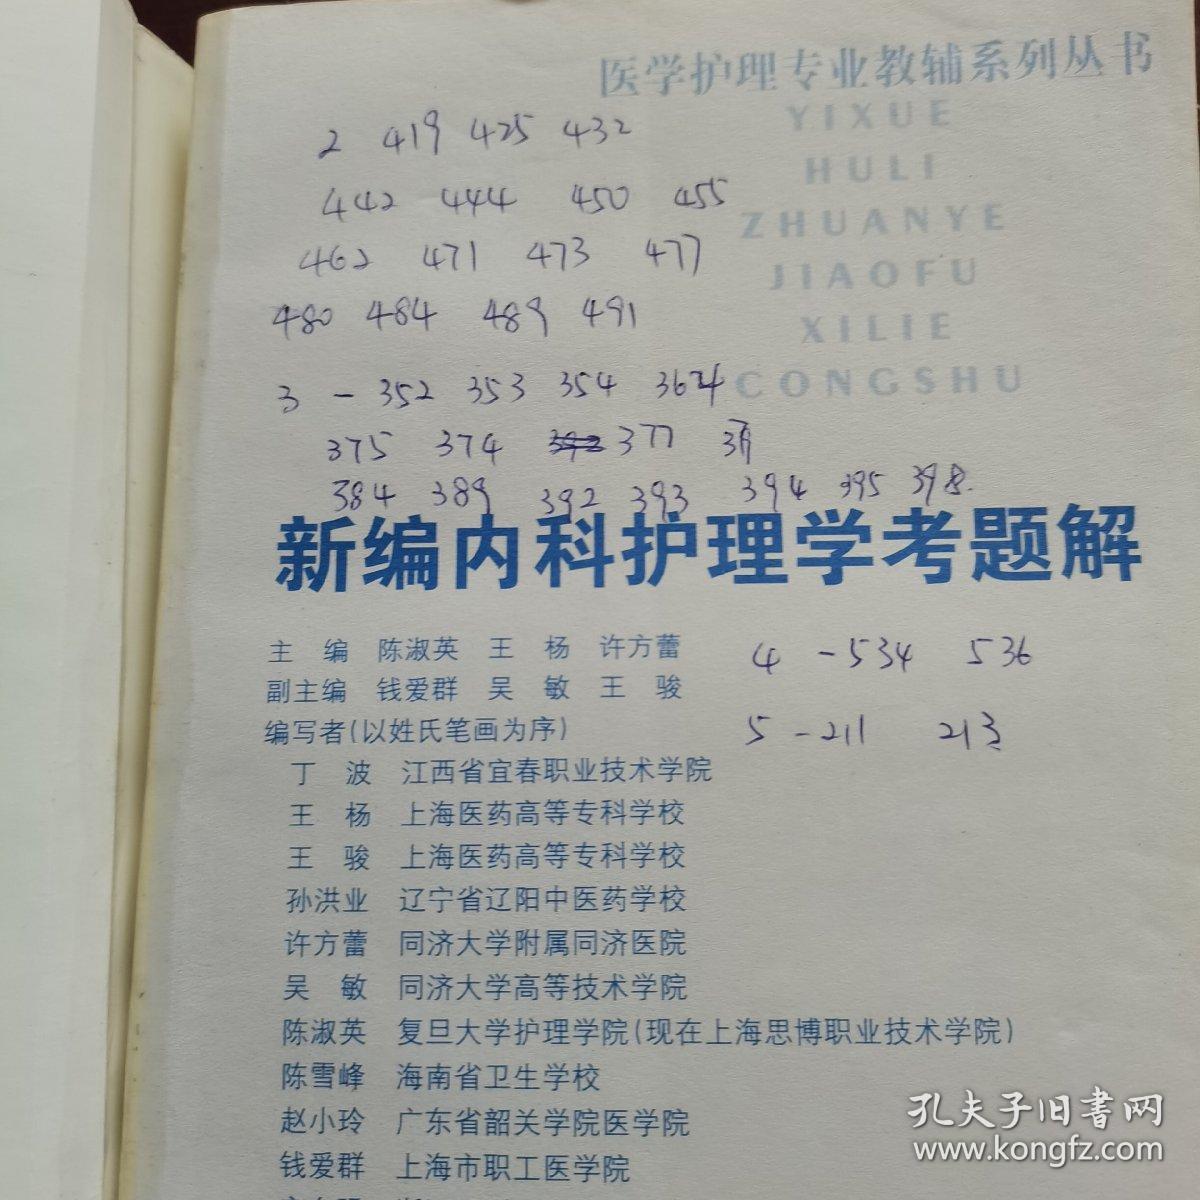 医学护理专业教辅系列丛书
YIXUE
HULI
ZHUANYE
JIAOFU
XILIE
CONGSHU
2 419 425 432
442 444 450 455
462 471 473 477
480 484 489 491
3 - 352 353 354
375 374 377
384 389 392 393 394 395 398.
新编内科护理学考题解
主 编 陈淑英 王 杨 许方蕾
副主编 钱爱群 吴 敏 王 骏
编写者(以姓氏笔画为序)
4 -534 536
5 -211 213
丁 波 江西省宜春职业技术学院
王 杨 上海医药高等专科学校
王 骏 上海医药高等专科学校
孙洪业 辽宁省辽阳中医药学校
许方蕾 同济大学附属同济医院
吴 敏 同济大学高等技术学院
陈淑英 复旦大学护理学院(现在上海思博职业技术学院)
陈雪峰 海南省卫生学校
赵小玲 广东省韶关学院医学院
钱爱群 上海市职工医学院
孔夫子旧书网
www.kongfz.com